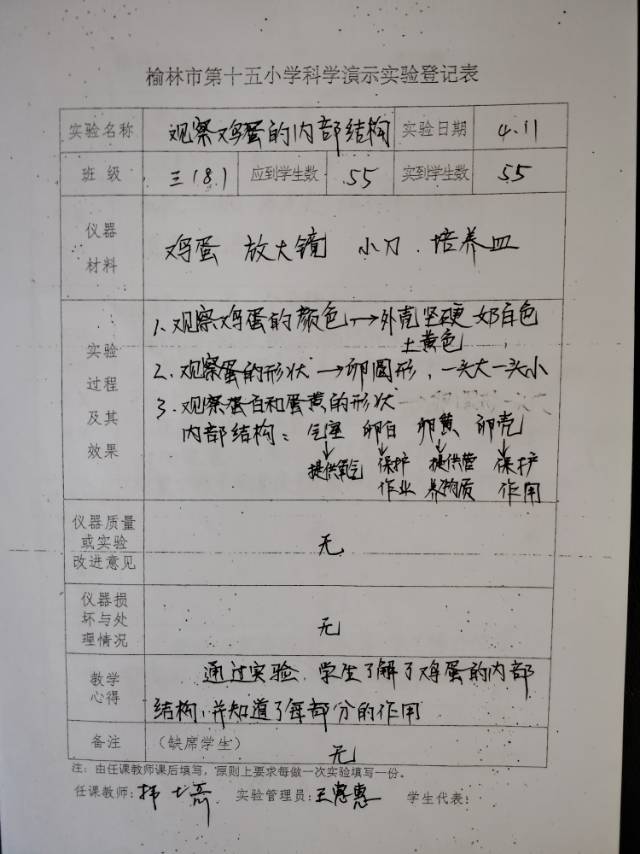 榆林市第十五小学科学演示实验登记表
实验名称 观察鸡蛋的内部结构 实验日期 4.11
班 级 三(8) 应到学生数 55 实到学生数 55
仪器
材料
鸡蛋 放大镜 小刀.培养皿
实验
过程
及其
效果
1.观察鸡蛋的颜色→外壳坚硬 奶白色
土黄色
2.观察蛋的形状→卵圆形,一头大一头小
3.观察蛋白和蛋黄的形状
内部结构:气室 卵白 卵黄 卵壳
提供氧气 保护 提供营 保护
作业 养物质 作用
仪器质量
或实验
改进意见
无
仪器损
坏与处
理情况
无
教学
心得
通过实验.学生了解了鸡蛋的内部
结构,并知道了每部分的作用
备注 (缺席学生) 无
注:由任课教师课后填写,原则上要求每做一次实验填写一份。
任课教师: 实验管理员: 学生代表: